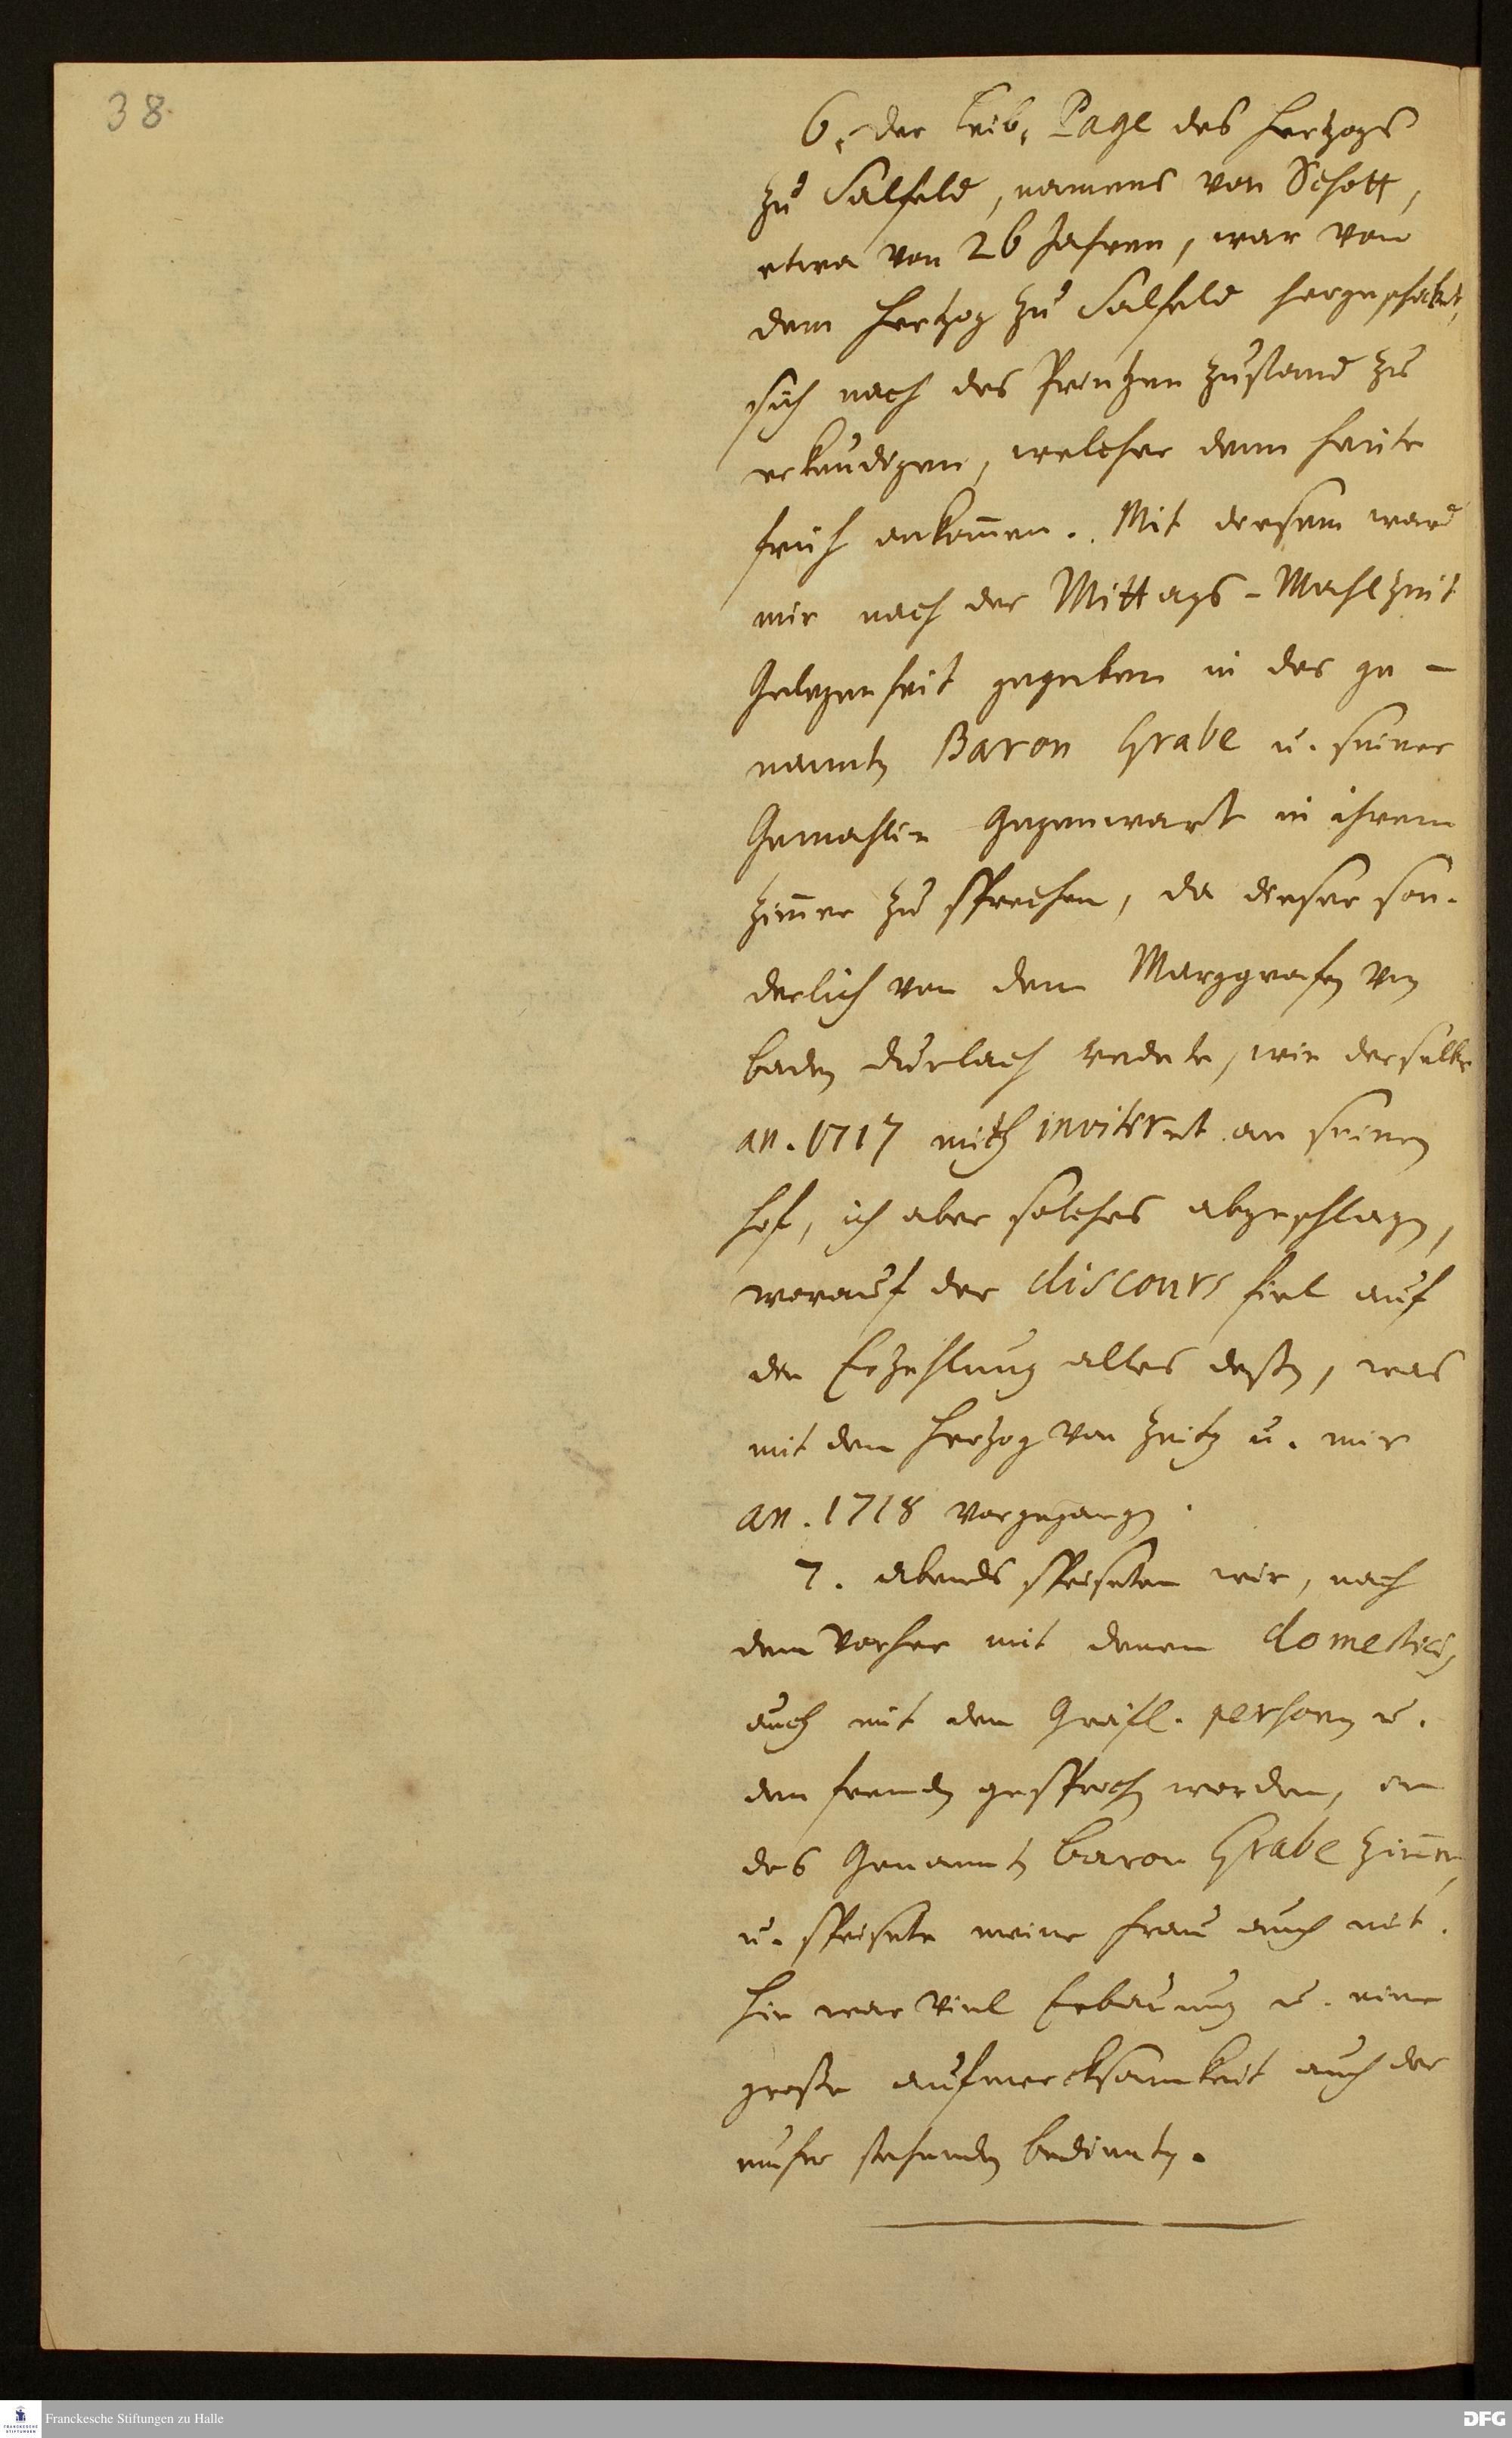 38
6. der Leib, Page des Hertzogs
zu Salfeld, namens von Schott,
etwa von 26 Jahren, war von
dem Hertzog zu Salfeld hergeschickt,
sich nach des Printzen Zustand zu
erkundigen, welcher denn heute
früh ankom̅en. Mit diesem ward
mir nach der Mittags-Mahlzeit
Gelegenheit gegeben in des ge-
nannten Baron Grabe u. seiner
Gemahlin Gegenwart in ihrem
Zim̅er zu sprechen, da dieser son-
derlich von dem Marggrafen von
Baden Durlach redete, wie derselbe
an. 1717 mich invitiret an seinen
Hof, ich aber solches abgeschlagen,
worauf der discours fiel auf
die Erzehlung alles deßen, was
mit dem Hertzog von Zeitz u. mir
an. 1718 vorgegangen.
7. Abends speiseten wir, nach
dem vorher mit denen domesticis,
auch mit den Gräfl. persohnen u.
den fremden gesprochen worden, in
des Genannten Baron Grabe Zim̅er,
u. speisete meine Frau auch mit.
Hie war viel Erbauung u. eine
große Aufmercksamkeit auch der
umher stehenden bedienten.
Franckesche Stiftungen zu Halle
DFG